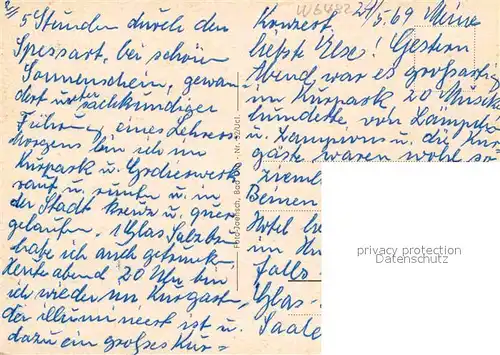 5 Stunden durch den
Spessart, bei schön
Sonnenschein, gewan
dert unter sachkundiger
Führung, eines Lehrers
Morgens bin ich im
Kurpark u. Gradierwerk
rauf u. runter u. in
der Stadt kreuz u. quer
gelaufen. 1 Glas Salzbr
habe ich auch getrunk
Heute abend 20 Uhr bin
ich wieder im Kurgart
der illuminiert ist u.
dazu ein großes Kur=
Konzert.
24/5.69 Meine
liebste Else! Gestern
Abend war es großartig
im Kurpark 20 Musik
hunderte von Lämpch
u. Lampions u. die Kur
gäste waren wohl so
ziem
Beinen
Hotel
im
Falls
Glas
Saale
privacy protection
Datenschutz